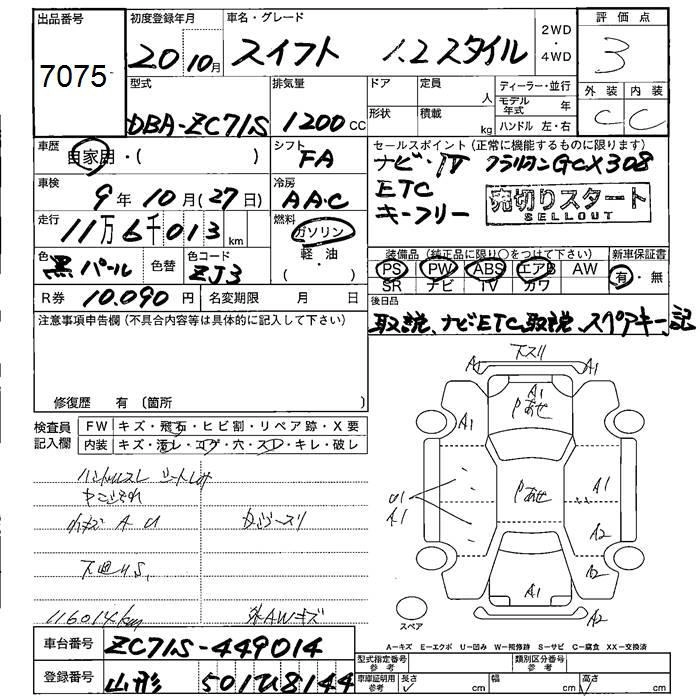 出品番号 初度登録年月 車名・グレード 評価点
7075 20 10月 スイフト 1.2 スタイル 2WD・4WD 3
型式 排気量 ドア 定員 人 ディーラー・並行 外装 内装
DBA-ZC71S 1200 cc 形状 積載 kg モデル年式 年 C C
ハンドル 左・右
車歴 自家用・( ) シフト FA セールスポイント(正常に機能するものに限ります)
ナビ・TV クラリオンGCX308
車検 9年10月(27日) 冷房 AAC ETC 売切りスタート
SELLOUT
キーフリー
走行 11万6千013 km 燃料 ガソリン・軽油
色 黒パール 色替 色コード ZJ3 装備品(純正品に限り○をつけて下さい) 新車保証書
PS PW ABS エアB AW 有・無
SR ナビ TV カワ
R券 10.090円 名変期限 月 日 後日品
取説、ナビETC取説、スペアキー、記
注意事項申告欄(不具合内容等は具体的に記入して下さい)
修復歴 有(箇所
検査員記入欄 FW キズ・飛石・ヒビ割・リペア跡・X要
内装 キズ・汚レ・コゲ・穴・スレ・キレ・破レ
ハンドルスレ
小キズ A U
下廻りS.
116014km 外AWキズ
下スリ
A1 A1
A1
Pあせ
A1
U1 A1 Pあせ A1
A2
A2
A1
A2
スペア
A-キズ E-エクボ U-凹み W-補修跡 S-サビ C-腐食 XX-交換済
車台番号 ZC71S-449014
型式指定番号 参考 類別区分番号 参考
登録番号 山形 501む8144
車庫証明用 参考 長さ cm 幅 cm 高さ cm